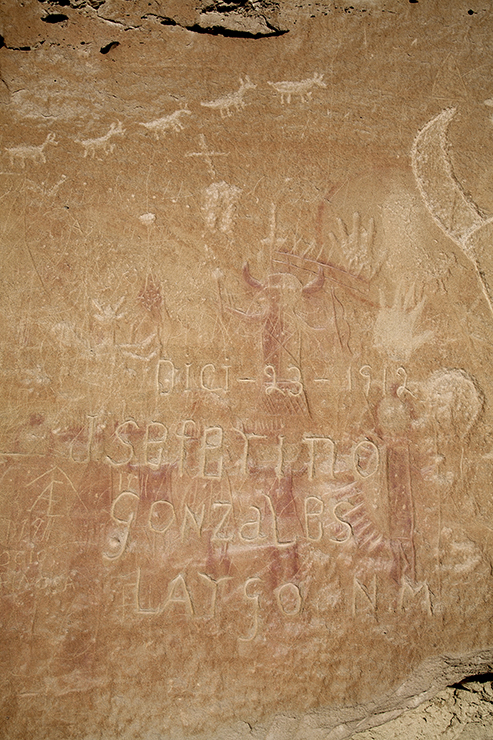 DICI-23-1912
JSEFERTINO
GONZALBS
LARGO N.M